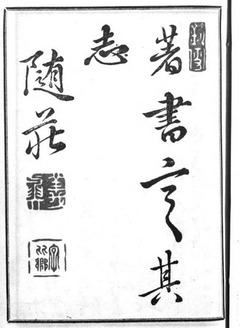 著書言其
志
随莊